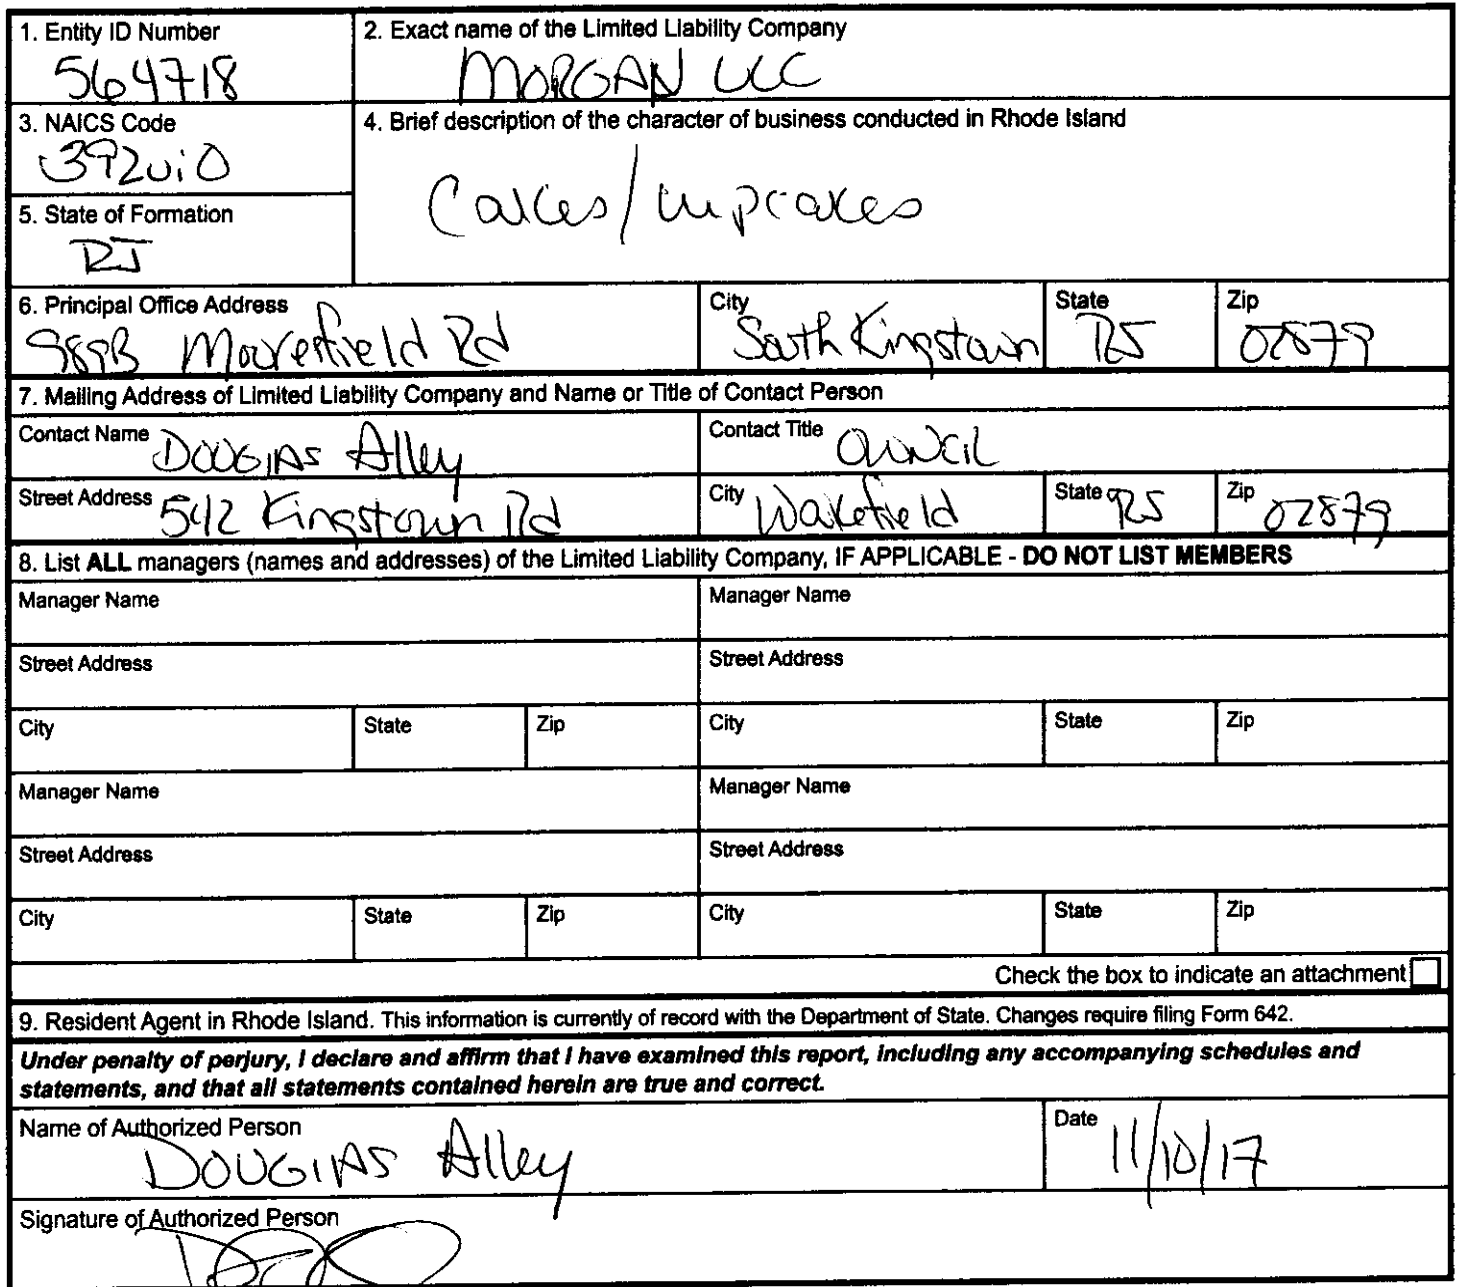 1. Entity ID Number
564718
2. Exact name of the Limited Liability Company
MORGAN LLC
3. NAICS Code
4. Brief description of the character of business conducted in Rhode Island
Cakes/cupcakes
5. State of Formation
RI
6. Principal Office Address
989B Moorefield Rd
City
South Kingstown
State
RI
Zip
02879
7. Mailing Address of Limited Liability Company and Name or Title of Contact Person
Contact Name
DOUGlAS Alley
Contact Title
Street Address
542 Kingstown Rd
City
Wakefield
State
RI
Zip
02879
8. List ALL managers (names and addresses) of the Limited Liability Company, IF APPLICABLE - DO NOT LIST MEMBERS
Manager Name
Manager Name
Street Address
Street Address
City
State
Zip
City
State
Zip
Manager Name
Manager Name
Street Address
Street Address
City
State
Zip
City
State
Zip
Check the box to indicate an attachment
9. Resident Agent in Rhode Island. This information is currently of record with the Department of State. Changes require filing Form 642.
Under penalty of perjury, I declare and affirm that I have examined this report, including any accompanying schedules and
statements, and that all statements contained herein are true and correct.
Name of Authorized Person
DOUGlAS Alley
Date
11/10/17
Signature of Authorized Person